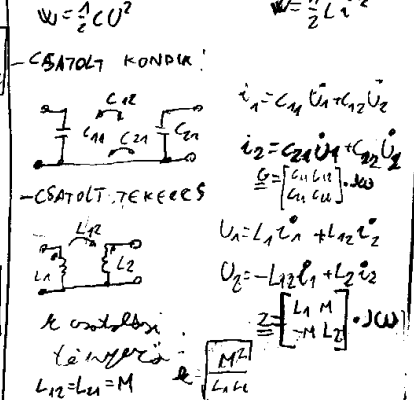 W=½CU²
W=½Li²
-CSATOLT KONDIK!
C12
C11 C21 C22
i₁=C11 U̇₁+C12 U̇₂
i₂=C21 U̇₁+C22 U̇₂
G=[C11 C12
C21 C22]·jω
-CSATOLT TEKERCS
L12
L1 L2
U₁=L₁i̇₁+L12 i̇₂
U₂=-L12 i̇₁+L₂ i̇₂
Z=[L₁ M
-M L₂]·jω
k csatolási
tényező:
L12=L21=M
k=√M²/L₁L₂